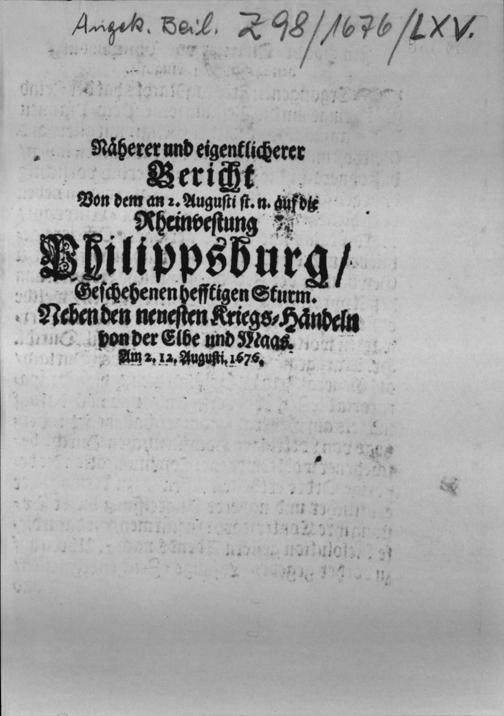 Angek. Beil. Z 98/1676/LXV.
Näherer und eigentlicherer
Bericht
Von dem an 2. Augusti st. n. auf die
Rheinvestung
Philippsburg/
Geschehenen hefftigen Sturm.
Neben den neuesten Kriegs-Händeln
von der Elbe und Maas.
Am 2. 12. Augusti, 1676.